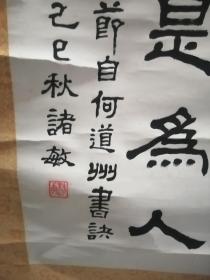 是為人
節自何道州書訣
己巳秋諸敏